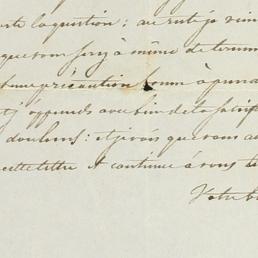 la question; au reste je vien
que vous serez à même de termin
une précaution bonne à pren
j'apprends avec bien de la satisf
douleurs: et je vois que vous a
cette lettre et continue à vous
Votre